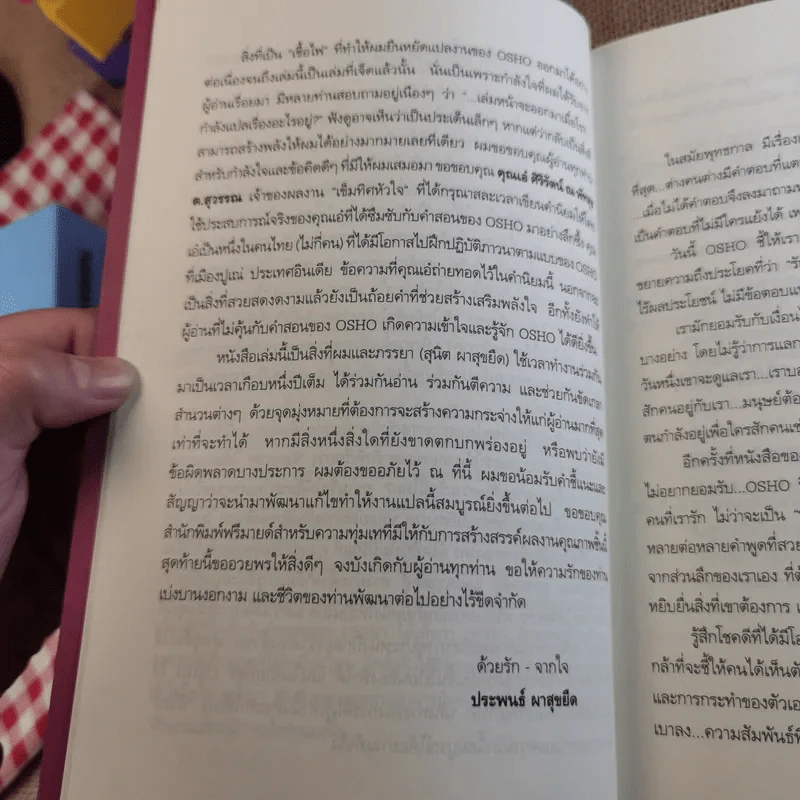 สิ่งที่เป็น "เชื้อไฟ" ที่ทำให้ผมยืนหยัดแปลงานของ OSHO ออกมาได้อย่าง
ต่อเนื่องจนถึงเล่มนี้เป็นเล่มที่เจ็ดแล้วนั้น นั่นเป็นเพราะกำลังใจที่ผมได้รับจาก
ผู้อ่านเรื่อยมา มีหลายท่านสอบถามอยู่เนืองๆ ว่า "...เล่มหน้าจะออกมาเมื่อไร
กำลังแปลเรื่องอะไรอยู่?" ฟังดูอาจเห็นว่าเป็นประเด็นเล็กๆ หากแต่ว่ากลับเป็นสิ่งที่
สามารถสร้างพลังให้ผมได้อย่างมากมายเลยทีเดียว ผมขอขอบคุณผู้อ่านทุกท่าน
สำหรับกำลังใจและข้อคิดดีๆ ที่มีให้ผมเสมอมา ขอขอบคุณ คุณเอ๋ ศิริวัฒน์ ณ
ต.สุวรรณ เจ้าของผลงาน "เข็มทิศหัวใจ" ที่ได้กรุณาสละเวลาเขียนคำนิยมให้โดย
ใช้ประสบการณ์จริงของคุณเอ๋ที่ได้ซึมซับกับคำสอนของ OSHO มาอย่างลึกซึ้ง คุณ
เอ๋เป็นหนึ่งในคนไทย (ไม่กี่คน) ที่ได้มีโอกาสไปฝึกปฏิบัติภาวนาตามแบบของ OSHO
ที่เมืองปูเณ่ ประเทศอินเดีย ข้อความที่คุณเอ๋ถ่ายทอดไว้ในคำนิยมนี้ นอกจากจะ
เป็นสิ่งที่สวยสดงดงามแล้วยังเป็นถ้อยคำที่ช่วยสร้างเสริมพลังใจ อีกทั้งยังทำให้
ผู้อ่านที่ไม่คุ้นกับคำสอนของ OSHO เกิดความเข้าใจและรู้จัก OSHO ได้ดียิ่งขึ้น
หนังสือเล่มนี้เป็นสิ่งที่ผมและภรรยา (สุนิต ผาสุขยืด) ใช้เวลาทำงานร่วมกัน
มาเป็นเวลาเกือบหนึ่งปีเต็ม ได้ร่วมกันอ่าน ร่วมกันตีความ และช่วยกันขัดเกลา
สำนวนต่างๆ ด้วยจุดมุ่งหมายที่ต้องการจะสร้างความกระจ่างให้แก่ผู้อ่านมากที่สุด
เท่าที่จะทำได้ หากมีสิ่งหนึ่งสิ่งใดที่ยังขาดตกบกพร่องอยู่ หรือพบว่ายังมี
ข้อผิดพลาดบางประการ ผมต้องขออภัยไว้ ณ ที่นี้ ผมขอน้อมรับคำชี้แนะและ
สัญญาว่าจะนำมาพัฒนาแก้ไขทำให้งานแปลนี้สมบูรณ์ยิ่งขึ้นต่อไป ขอขอบคุณ
สำนักพิมพ์ฟรีมายด์สำหรับความทุ่มเทที่มีให้กับการสร้างสรรค์ผลงานคุณภาพชิ้นนี้
สุดท้ายนี้ขออวยพรให้สิ่งดีๆ จงบังเกิดกับผู้อ่านทุกท่าน ขอให้ความรักของท่าน
เบ่งบานงอกงาม และชีวิตของท่านพัฒนาต่อไปอย่างไร้ขีดจำกัด
ด้วยรัก - จากใจ
ประพนธ์ ผาสุขยืด
ในสมัยพุทธกาล มีเรื่อง
ที่สุด...ต่างคนต่างมีคำตอบที่
...เมื่อไม่ได้คำตอบจึงลงมาถาม
เป็นคำตอบที่ไม่มีใครแย้งได้
วันนี้ OSHO ชี้ให้เรา
ขยายความถึงประโยคที่ว่า
ไร้ผลประโยชน์ ไม่มีข้อตอบแ
เรามักยอมรับกับเงื่อน
บางอย่าง โดยไม่รู้ว่าการแลก
วันหนึ่งเขาจะดูแลเรา...เราบอ
สักคนอยู่กับเรา...มนุษย์ต้อ
ตนกำลังอยู่เพื่อใครสักคนเช่
อีกครั้งที่หนังสือของ
ไม่อยากยอมรับ...OSHO
คนที่เรารัก ไม่ว่าจะเป็น
หลายต่อหลายคำพูดที่สวย
จากส่วนลึกของเราเอง ที่
หยิบยื่นสิ่งที่เขาต้องการ
รู้สึกโชคดีที่ได้มีโอ
กล้าที่จะชี้ให้คนได้เห็นตั
และการกระทำของตัวเอ
เบาลง...ความสัมพันธ์ที่